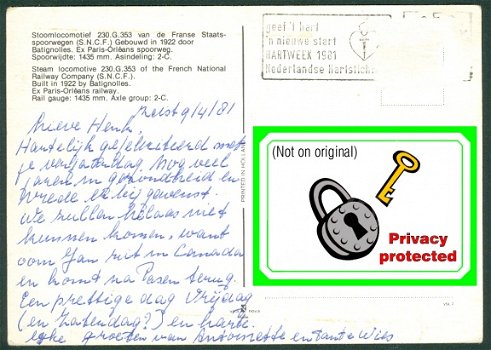 Stoomlocomotief 230.G.353 van de Franse Staats-
spoorwegen (S.N.C.F.) Gebouwd in 1922 door
Batignolles. Ex Paris-Orléans spoorweg.
Spoorwijdte: 1435 mm. Asindeling: 2-C.
Steam locomotive 230.G.353 of the French National
Railway Company (S.N.C.F.).
Built in 1922 by Batignolles.
Ex Paris-Orléans railway.
Rail gauge: 1435 mm. Axle group: 2-C.
geef 't hart
'n nieuwe start
HARTWEEK 1981
Nederlandse Hartstichting
Zeist 9/4/81
Lieve Henk,
Hartelijk gefeliciteerd met
je verjaardag. Nog veel
jaren in gezondheid en
vrede er bij gewenst.
We zullen helaas niet
kunnen komen, want
oom Jan zit in Canada
en komt na Pasen terug.
Een prettige dag Vrijdag
(en Zaterdag?) en harte-
lijke groeten van Antoinette en Tante Wies
PRINTED IN HOLLAND
(Not on original)
Privacy
protected